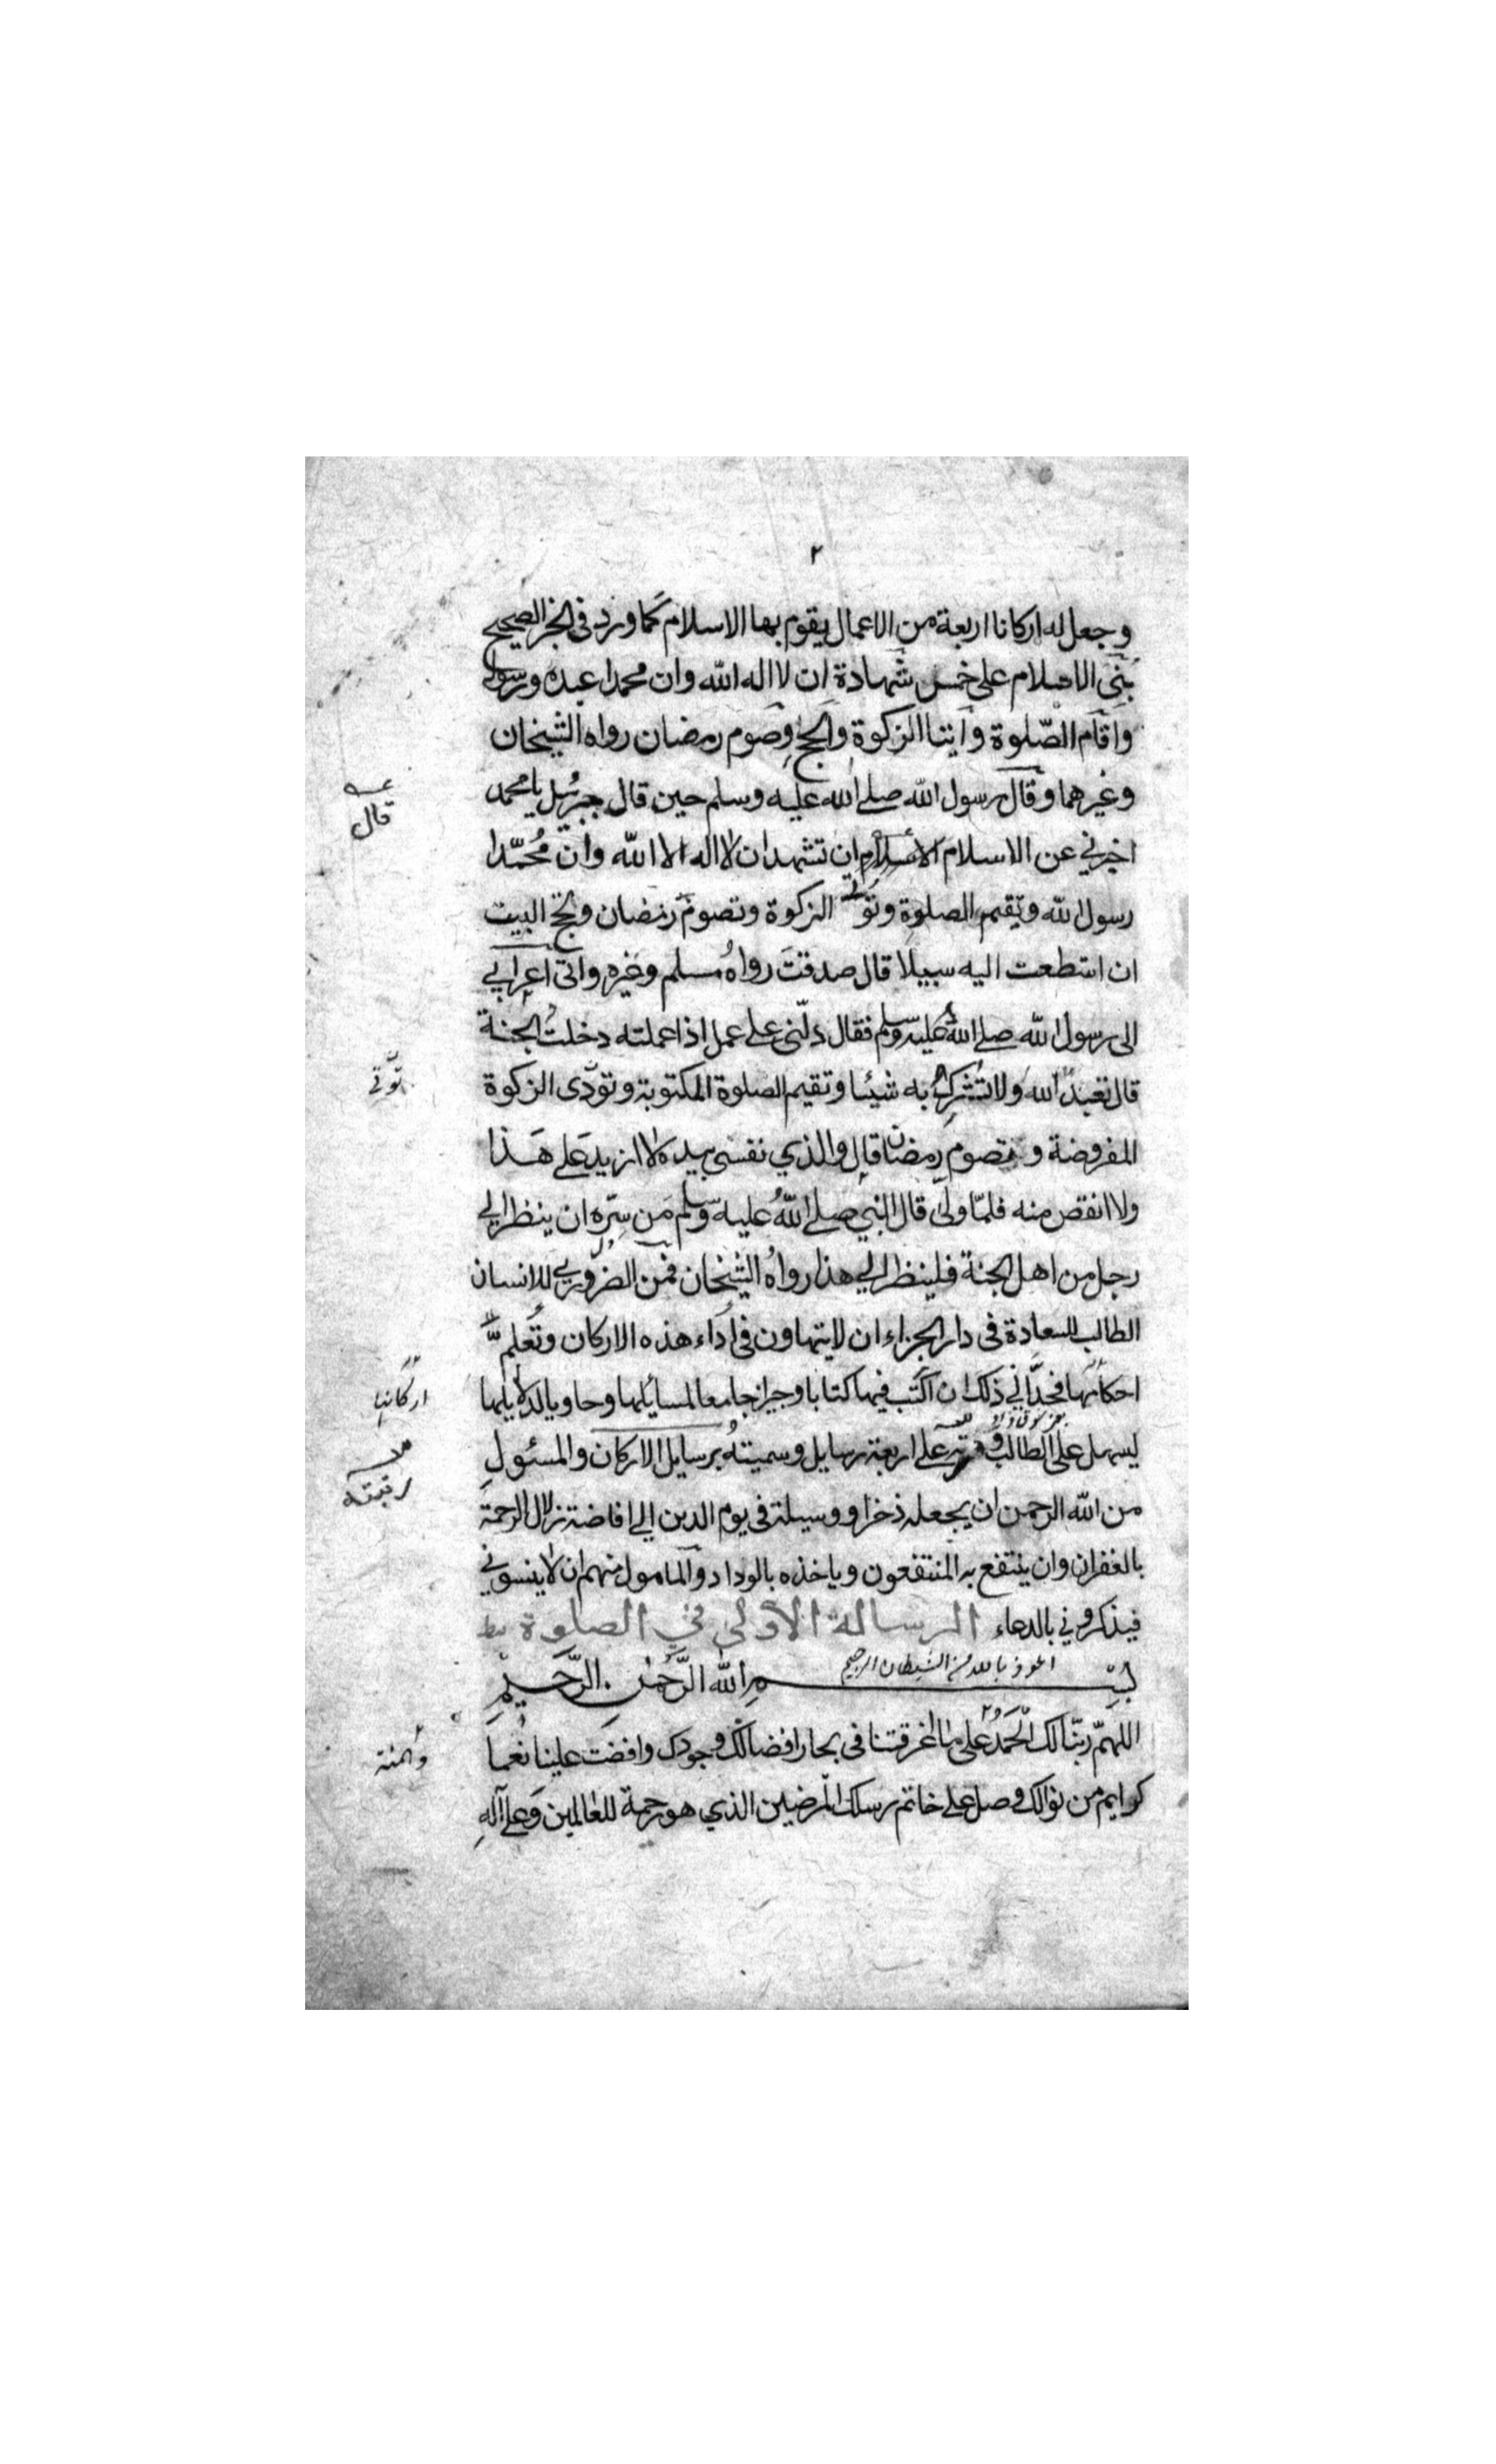 ٢
وجعل له اركانا اربعة من الاعمال يقوم بها الاسلام كما ورد في الخبر الصحيح
بُنِيَ الاسلام على خمس شهادة ان لا اله الله وان محمدا عبده ورسوله
واقام الصّلوة وايتا الزكوة والحج وصوم رمضان رواه الشيخان
وغيرهما وقال رسول الله صلى الله عليه وسلم حين قال جبرئيل يا محمد
قال
اخبرني عن الاسلام الاسلام ان تشهد ان لا اله الا الله وان مُحمّدا
رسول الله وتقيم الصلوة وتؤتي الزكوة وتصوم رمضان وتحج البيت
ان استطعت اليه سبيلا قال صدقتَ رواهُ مسلم وغيره واتى اعرابي
الى رسول الله صلى الله عليه وسلم فقال دلّني على عمل اذا عملته دخلتُ الجنة
قال تعبد الله ولا تشرك به شيئا وتقيم الصلوة المكتوبة وتودى الزكوة
المفروضة وتصوم رمضان قال والذي نفسي بيده لا ازيد على هَذا
ولا انقص منه فلمّا ولى قال النبي صلى اللهُ عليه وسلم مَن سرّه ان ينظر الى
رجل من اهل الجنة فلينظر الى هذا رواهُ الشيخان فمن الضروري للانسان
الطالب للسعادة في دار الجزاء ان لا يتهاون في اداء هذه الاركان وتعلم
احكامها فحدّاني ذلك ان اكتب فيها كتابا وجيزا جامعا لمسايلها وحاويا لدلايلها
اركانها
ليسهل على الطالب و على اربعة رسايل وسميتهُ برسايل الاركان والمسئول
رتبته
من الله الرحمن ان يجعله ذخرا ووسيلة في يوم الدين الى افاضة زلال الرحمة
بالغفران وان ينتفع به المنتفعون وياخذه بالوداد والمامول منهم ان لا ينسوني
فيذكروني بالدعاء الرسالة الاولى في الصلوة
اعوذ بالله من الشيطان الرجيم
بسم الله الرَّحمٰن الرَّحيم
اللهمّ ربّنا لك الحَمدُ على ما اغرقتنا في بحار افضالك وجودك وافضت علينا نعما
والمنة
كرايم من نوالك وصل على خاتم رسلك المرضيين الذي هو رحمة للعالمين وَعلى آلهِ